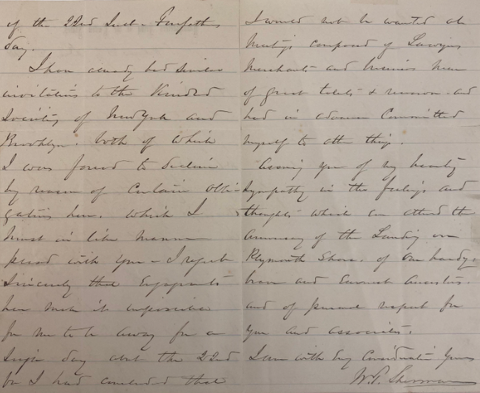 of the 22nd Inst - Forefathers
day.
I have already had similar
invitations to the Kindred
Society of New York and
Brooklyn. both of which
I was forced to decline
by reason of Certain Obli-
gations here. which I
must in like manner
plead with you - I regret
Sincerely that Engagements
here make it impossible
for me to be away for a
Single day about the 22nd
for I had concluded that
I would not be wanted at
Meetings composed of Lawyers
Merchants and business men
of great talents & renown. and
had in advance Committed
myself to other things.
Assuring you of my hearty
Sympathy in the feelings and
thoughts which can attend the
Anniversary of the Landing on
Plymouth Shore. of our hardy
brave and Earnest Ancestors.
and of personal respect for
you and associates.
I am with big Consideration Yours
W. T. Sherman